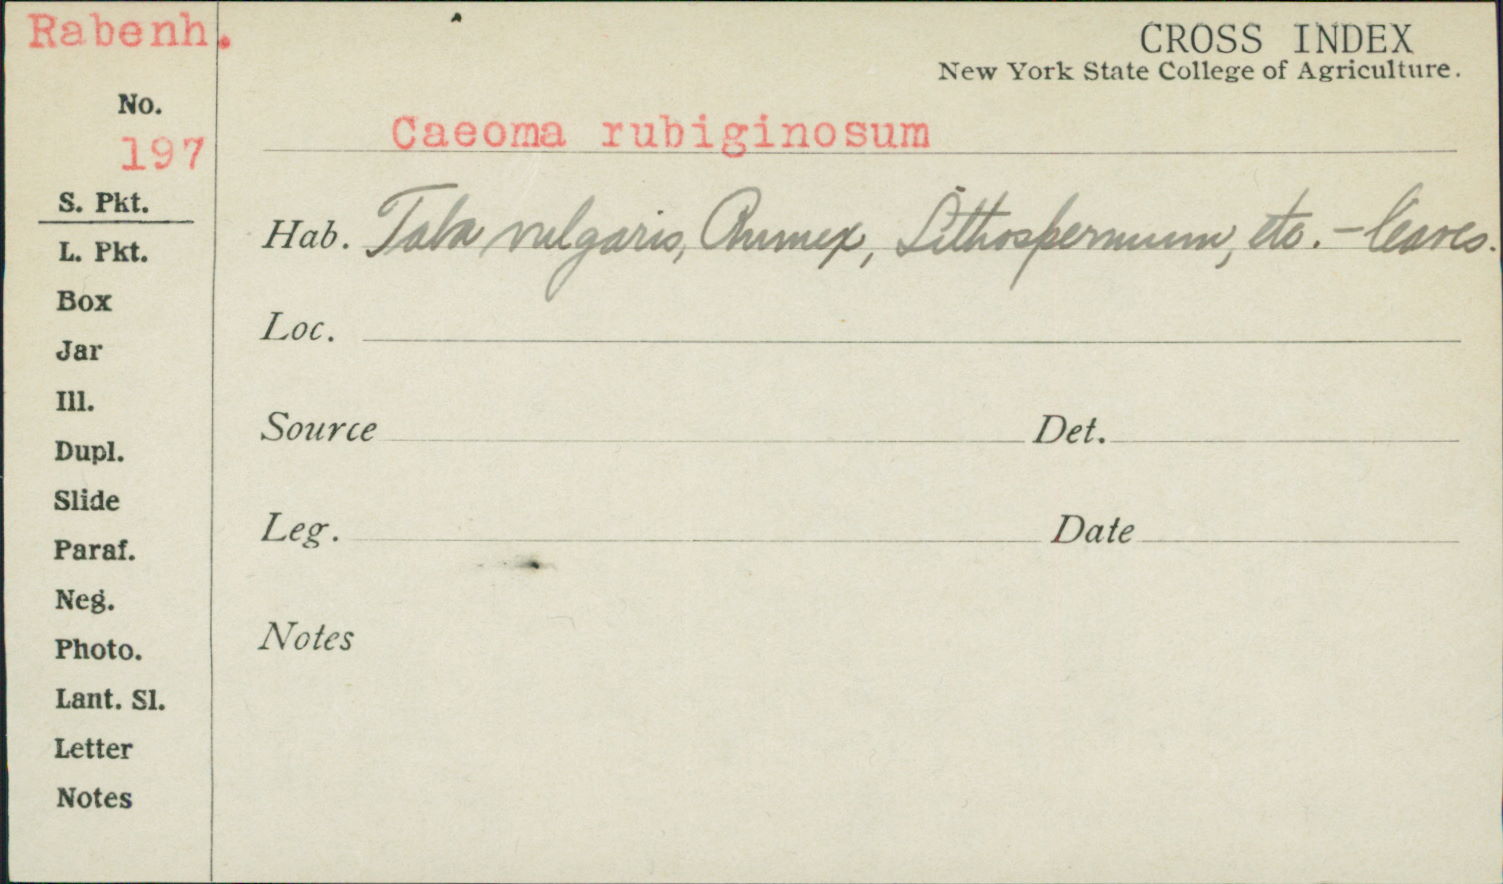 Rabenh.
CROSS INDEX
New York State College of Agriculture.
No.
197
Caeoma rubiginosum
S. Pkt.
L. Pkt.
Box
Jar
Ill.
Dupl.
Slide
Paraf.
Neg.
Photo.
Lant. Sl.
Letter
Notes
Hab. Faba vulgaris, Rumex, Lithospermum, etc. - leaves.
Loc.
Source Det.
Leg. Date
Notes